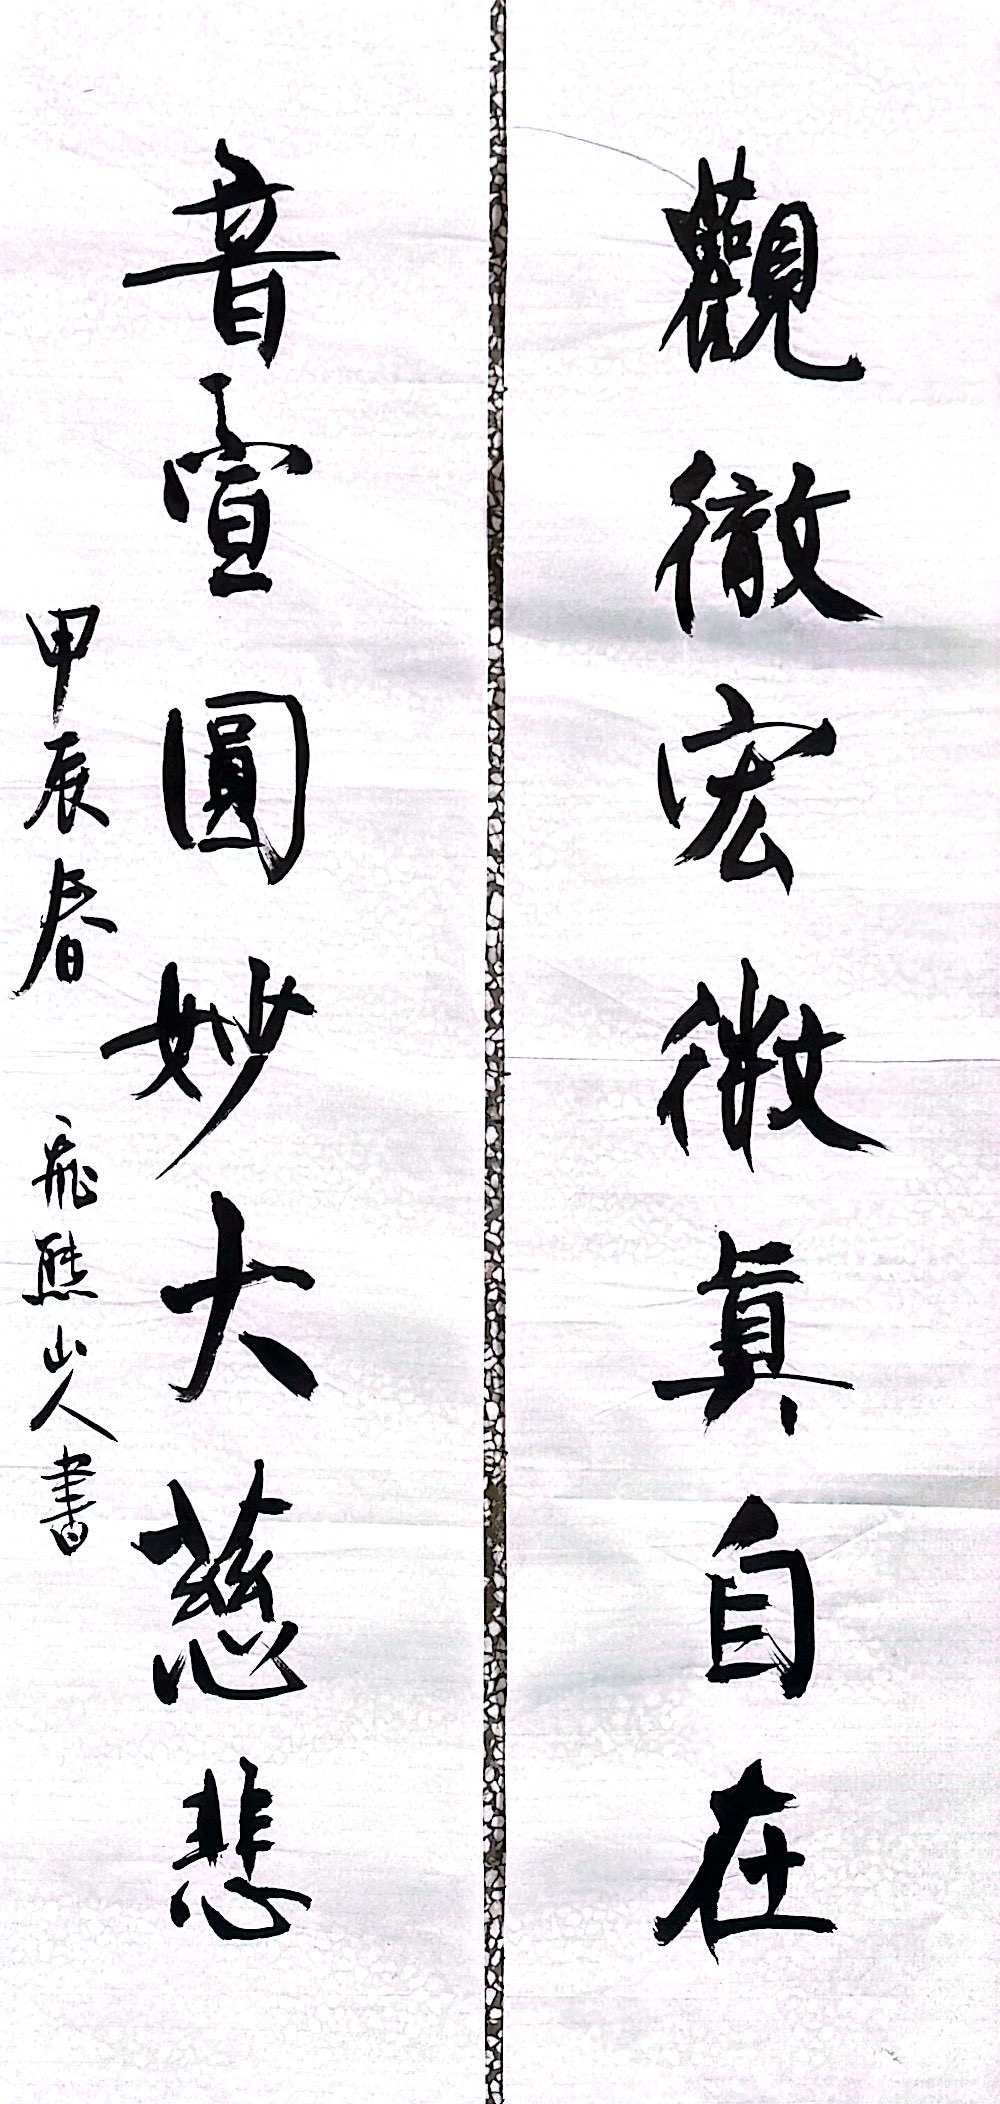 觀徹宏微真自在
音宣圓妙大慈悲
甲辰春 熊山人書